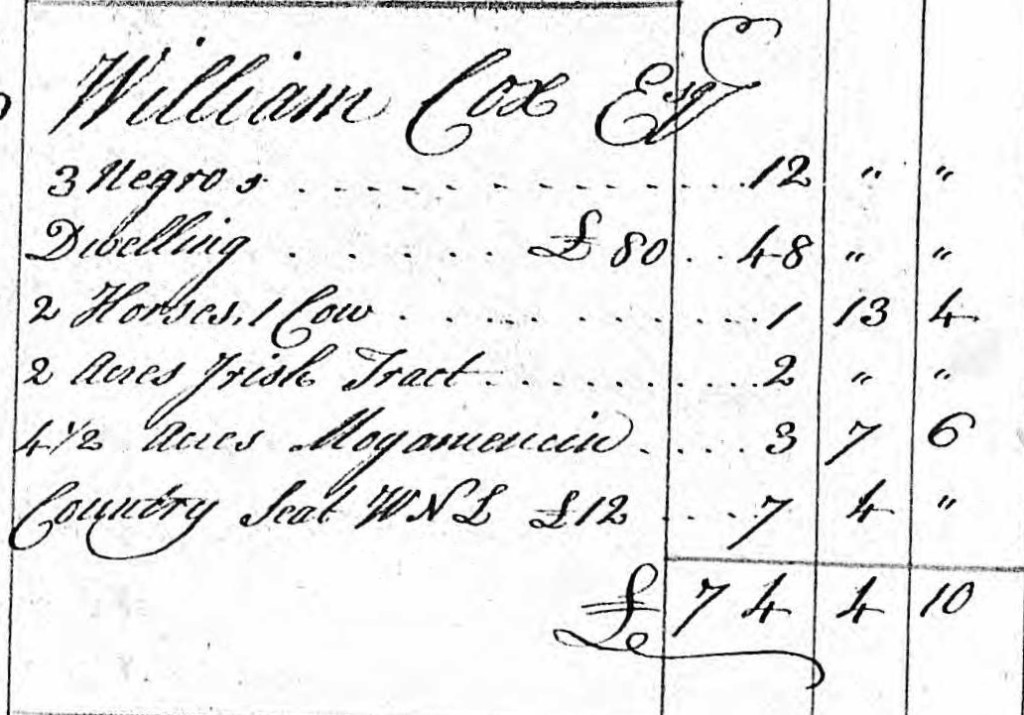 William Cox Esqr
3 Negros . . . . . . . . . . . . . 12 " "
Dwelling . . . . . . £80 . . 48 " "
2 Horses, 1 Cow . . . . . . . . . . . 1 13 4
2 Acres Irish Tract . . . . . . . . . . 2 " "
4 1/2 Acres Moyamencin . . . . 3 7 6
Country Seat W N L £12 . . . . 7 4 "
£ 74 4 10